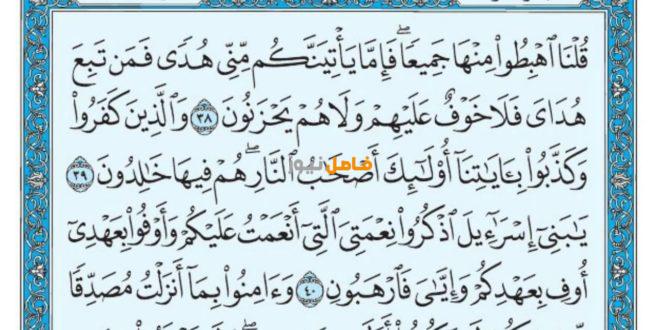 قُلْنَا ٱهْبِطُوا۟ مِنْهَا جَمِيعًا ۖ فَإِمَّا يَأْتِيَنَّكُم مِّنِّى هُدًى فَمَن تَبِعَ
هُدَاىَ فَلَا خَوْفٌ عَلَيْهِمْ وَلَا هُمْ يَحْزَنُونَ ٣٨ وَٱلَّذِينَ كَفَرُوا۟
وَكَذَّبُوا۟ بِـَٔايَـٰتِنَآ أُو۟لَـٰٓئِكَ أَصْحَـٰبُ ٱلنَّارِ ۖ هُمْ فِيهَا خَـٰلِدُونَ ٣٩
فاصل نيوز
يَـٰبَنِىٓ إِسْرَٰٓءِيلَ ٱذْكُرُوا۟ نِعْمَتِىَ ٱلَّتِىٓ أَنْعَمْتُ عَلَيْكُمْ وَأَوْفُوا۟ بِعَهْدِىٓ
أُوفِ بِعَهْدِكُمْ وَإِيَّـٰىَ فَٱرْهَبُونِ ٤٠ وَءَامِنُوا۟ بِمَآ أَنزَلْتُ مُصَدِّقًا